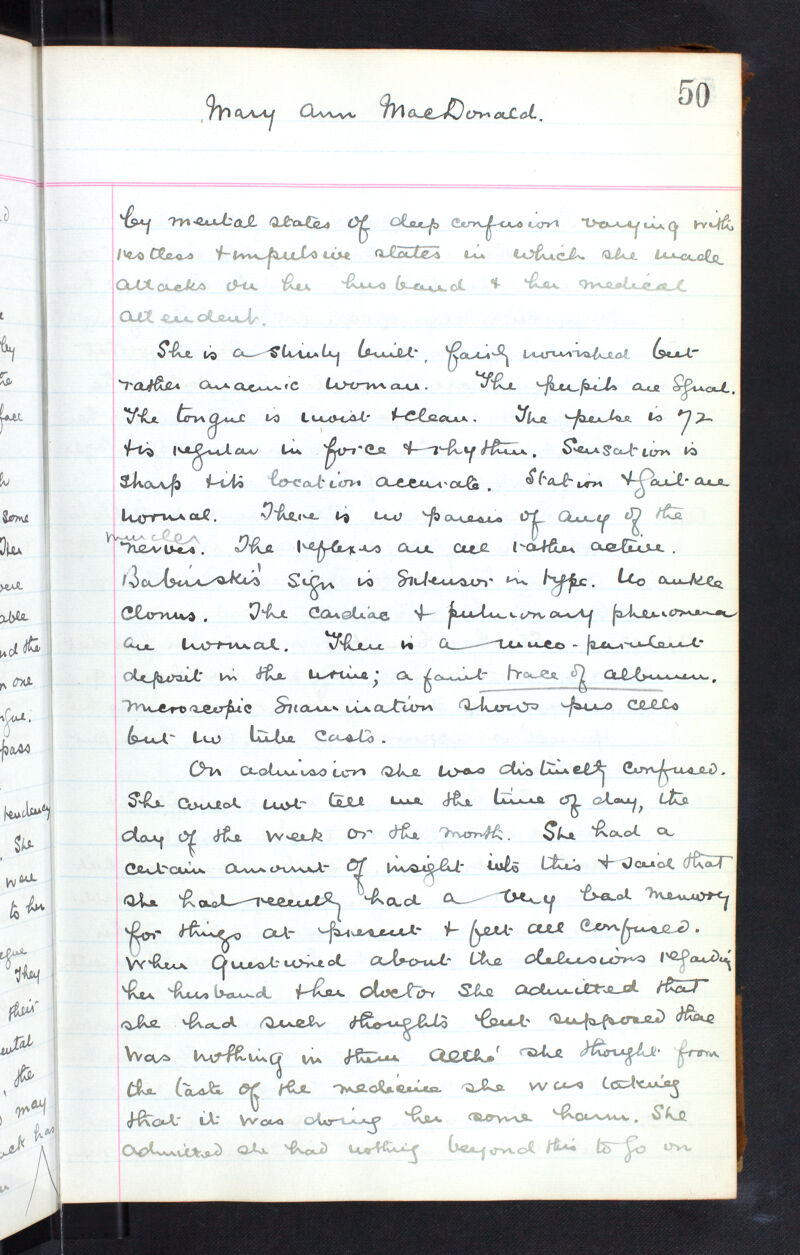 50
Mary Ann MacDonald.
by mental states of deep confusion varying with
restless & impulsive states in which she made
attacks on her husband & her medical
attendent.
She is a built, fairly nourished but
rather anaemic woman. The pupils are equal.
The tongue is moist & clean. The pulse is 72
& is regular in force & rhythm. Sensation is
sharp & its location accurate. Station & gait are
normal. There is no paresis of any of the
muscles
nerves. The reflexes are all rather active.
Babinski's sign is extensor in type. No ankle
clonus. The cardiac & pulmonary phenomena
are normal. There is a muco-purulent
deposit in the urine; a faint trace of albumen.
Microscopic examination shows pus cells
but no tube casts.
On admission she was distinctly confused.
She could not tell me the time of day, the
day of the week or the month. She had a
certain amount of insight into this & said that
she had recently had a very bad memory
for things at present & felt all confused.
When questioned about the delusions regarding
her husband & her doctor she admitted that
she had such thoughts but supposed there
was nothing in them altho' she thought from
the taste of the medicine she was taking
that it was doing her some harm. She
admitted she had nothing beyond this to go on
some
able
and the
on one
pass
tendency
. She
were
to her
They
their
mental
, the
may